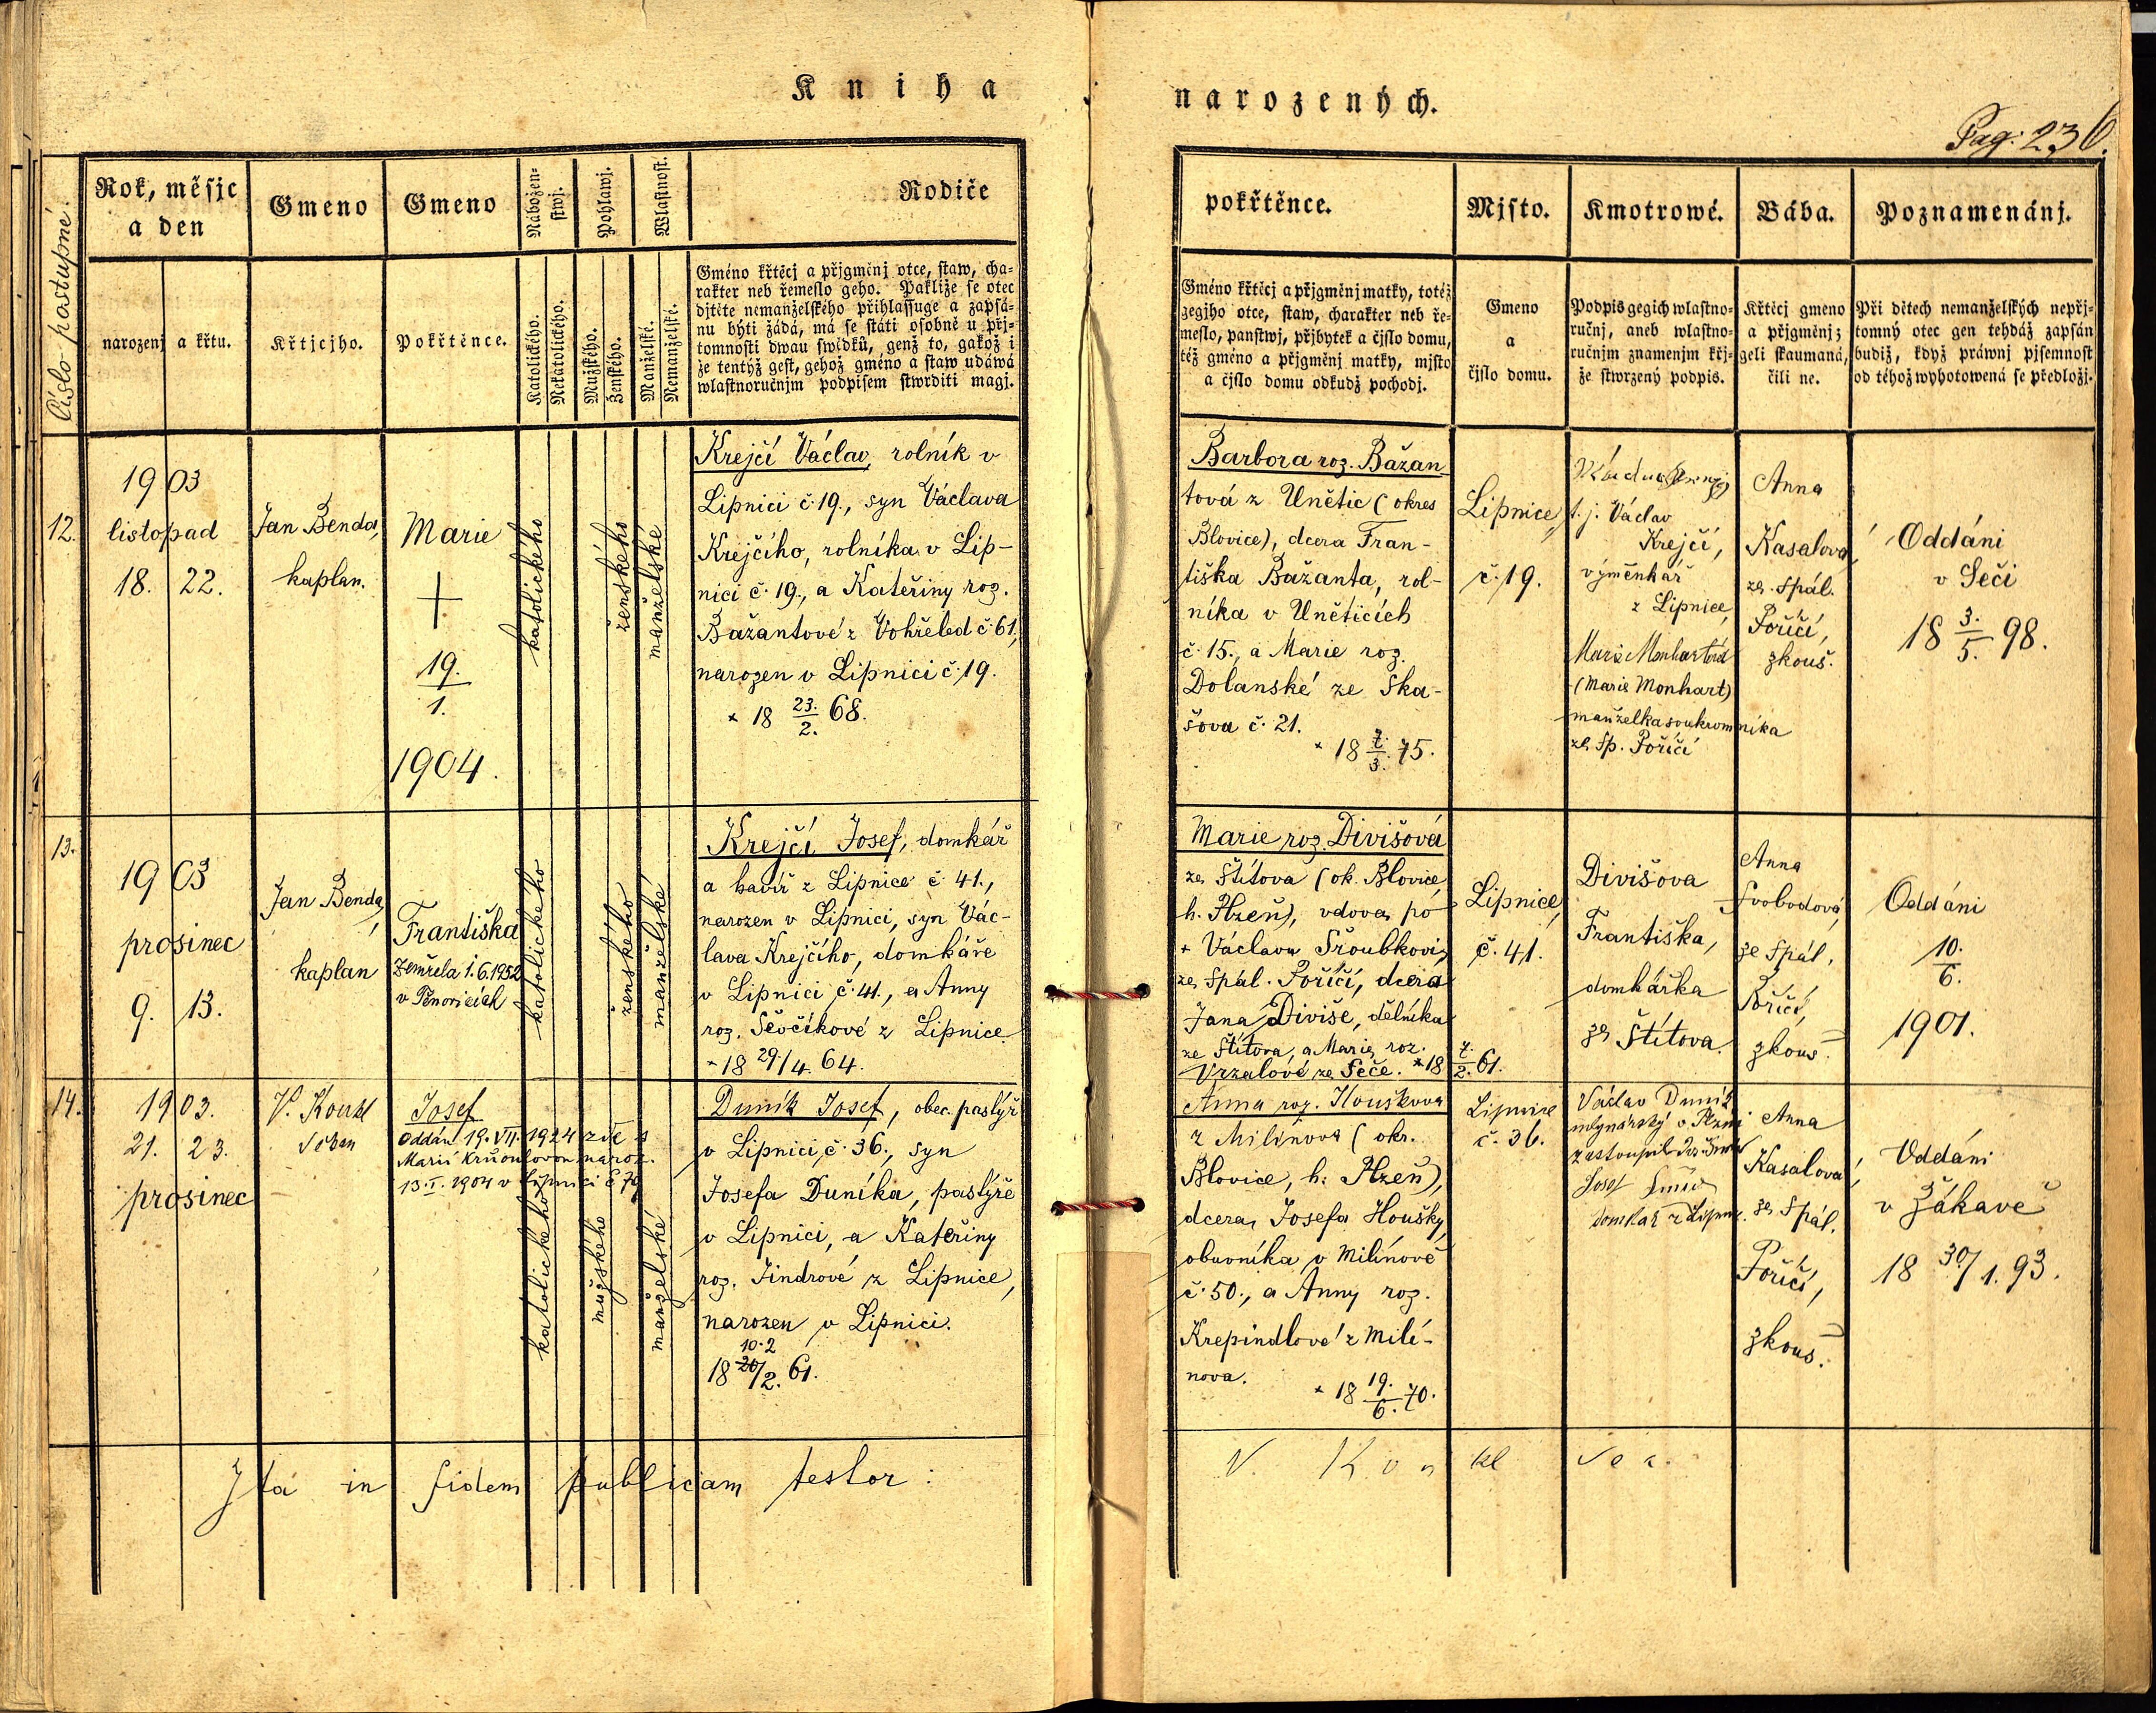 Kniha
narozených.
Pag: 236.
Čjslo postupné.
Rok, měsjc
a den
narozenj a křtu.
Gmeno
Křtjcjho.
Gmeno
Pokřtěnce.
Nábožen-
stwj.
Katolického.
Nekatolického.
Pohlawj.
Mužského.
Ženského.
Wlastnost.
Manželské.
Nemanželské.
Rodiče
Gméno křtěcj a přjgměnj otce, staw, cha-
rakter neb řemeslo geho. Pakliže se otec
djtěte nemanželského přihlassuge a zapsá-
nu býti žádá, má se státi osobně u přj-
tomnosti dwau swědků, genž to, gakož i
že tentýž gest, gehož gméno a staw udáwá
wlastnoručnjm podpisem stwrditi magj.
pokřtěnce.
Gméno křtěcj a přjgměnj matky, totéž
gegjho otce, staw, charakter neb ře-
meslo, panstwj, přjbytek a čjslo domu,
též gméno a přjgměnj matky, mjsto
a čjslo domu odkudž pochodj.
Mjsto.
Gmeno
a
čjslo domu.
Kmotrowé.
Podpis gegich wlastno-
ručnj, aneb wlastno-
ručnjm znamenjm křj-
že stwrzený podpis.
Bába.
Křtěcj gmeno
a přjgměnj;
geli skaumaná,
čili ne.
Poznamenánj.
Při dětech nemanželských nepřj-
tomný otec gen tehdáž zapsán
budiž, když práwnj pjsemnost
od téhož wyhotowená se předložj.
12.
1903
listopad
18. 22.
Jan Benda,
kaplan.
Marie
+
19.
1.
1904.
katolického
ženského
manželské
Krejčí Václav, rolník v
Lipnici č. 19., syn Václava
Krejčího, rolníka v Lip-
nici č. 19., a Kateřiny roz.
Bažantové z Vohřeled č. 61,
narozen v Lipnici č. 19.
* 18 23./2. 68.
Barbora roz. Bažan-
tová z Unětic (okres
Blovice), dcera Fran-
tiška Bažanta, rol-
níka v Uněticích
č. 15., a Marie roz.
Dolanské ze Ska-
šova č. 21.
* 18 7./3. 75.
Lipnice,
č. 19.
t. j. Václav
Krejčí,
výměnkář
z Lipnice,
Marie Monhartová
(Marie Monhart)
manželka soukromníka
ze Sp. Poříčí
Anna
Kasalová,
ze Spál.
Poříčí,
zkouš.
Oddáni
v Seči
18 3./5. 98.
13.
1903
prosinec
9. 13.
Jan Benda,
kaplan
Františka
Zemřela 1.6.1952
katolického
ženského
manželské
Krejčí Josef, domkář
a havíř z Lipnice č. 41.,
narozen v Lipnici, syn Vác-
lava Krejčího, domkáře
v Lipnici č. 41., a Anny
roz. Ševčíkové z Lipnice
* 18 29./4. 64.
Marie roz. Divišová
ze Štítova (ok. Blovice,
h. Plzeň), vdova po
+ Václavu Sřoubkovi,
ze Spál. Poříčí, dcera
Jana Diviše, dělníka
ze Štítova, a Marie roz.
Vrzalové ze Seče. * 18 7./2. 61.
Lipnice,
č. 41.
Divišova
Františka,
domkářka
ze Štítova.
Anna
Svobodová,
ze Spál.
Poříčí,
zkouš.
Oddáni
10.
6.
1901.
14.
1903.
21. 23.
prosinec
V. Konkl
Josef
Oddán 19. VII. 1924 zde s
Marií naroz.
13. I. 1904 v Lipnici č 79
katolického
mužského
manželské
Duník Josef, obec. pastýř
v Lipnici č. 36., syn
Josefa Duníka, pastýře
v Lipnici, a Kateřiny
roz. Jindrové z Lipnice,
narozen v Lipnici.
10. 2
18 20/2. 61.
Anna roz. Houškova
z Milínova (okr.
Blovice, h. Plzeň),
dcera Josefa Houšky,
obuvníka v Milínově
č. 50., a Anny roz.
Krepindlové z Milí-
nova.
* 18 19./6. 70.
Lipnice
č. 36.
Václav Duník
mlynářský v Plzni
Josef
domkář z Lipnice.
Anna
Kasalová,
ze Spál.
Poříčí,
zkouš.
Oddáni
v Žákavě
18 30/1. 93.
Ita in fidem publicam testor:
V. Konkl